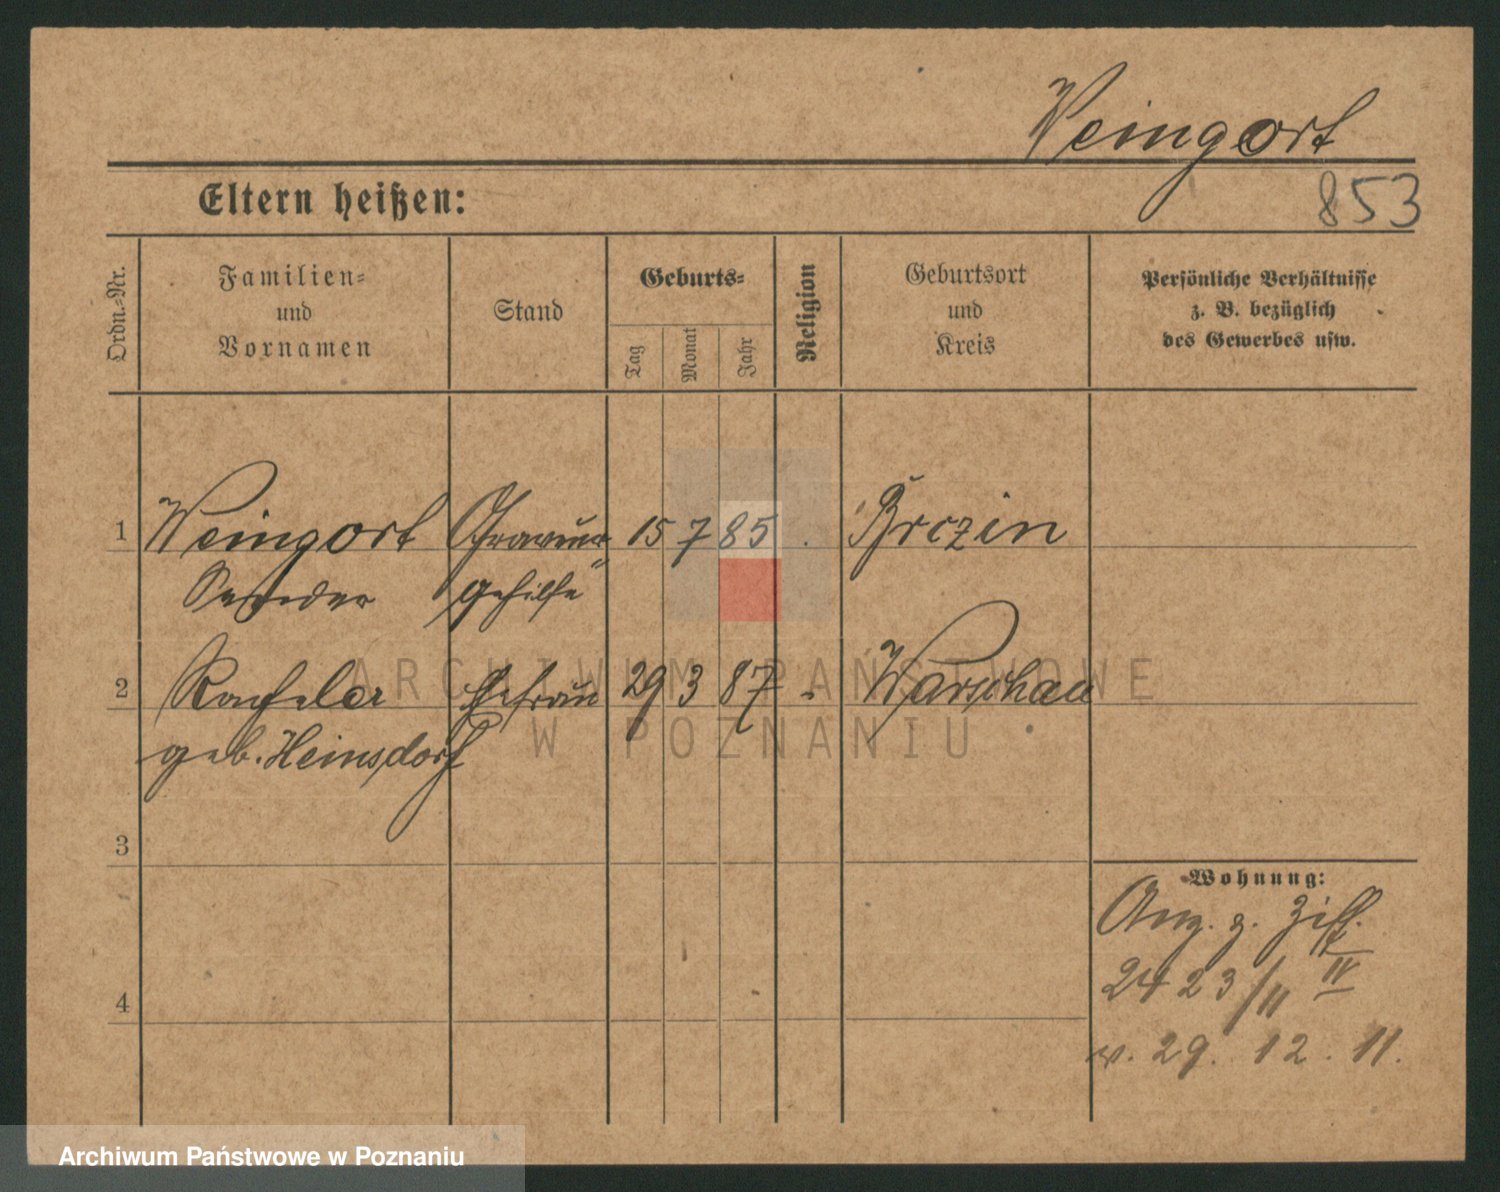 Weingort
853
Eltern heißen:
Ordn.-Nr.
Familien-
und
Vornamen
Stand
Geburts-
Tag
Monat
Jahr
Religion
Geburtsort
und
Kreis
Persönliche Verhältnisse
z. B. bezüglich
des Gewerbes usw.
1 Weingort Graveur- 15 7 85 . Brczin
gehilfe
2 Ehefrau 29 3 87 - Warschau
geb. Heinsdorf
3
4
Wohnung:
Anz. z. Ziff.
2423/11 IV
v. 29. 12. 11.
ARCHIWUM PAŃSTWOWE
W POZNANIU
Archiwum Państwowe w Poznaniu